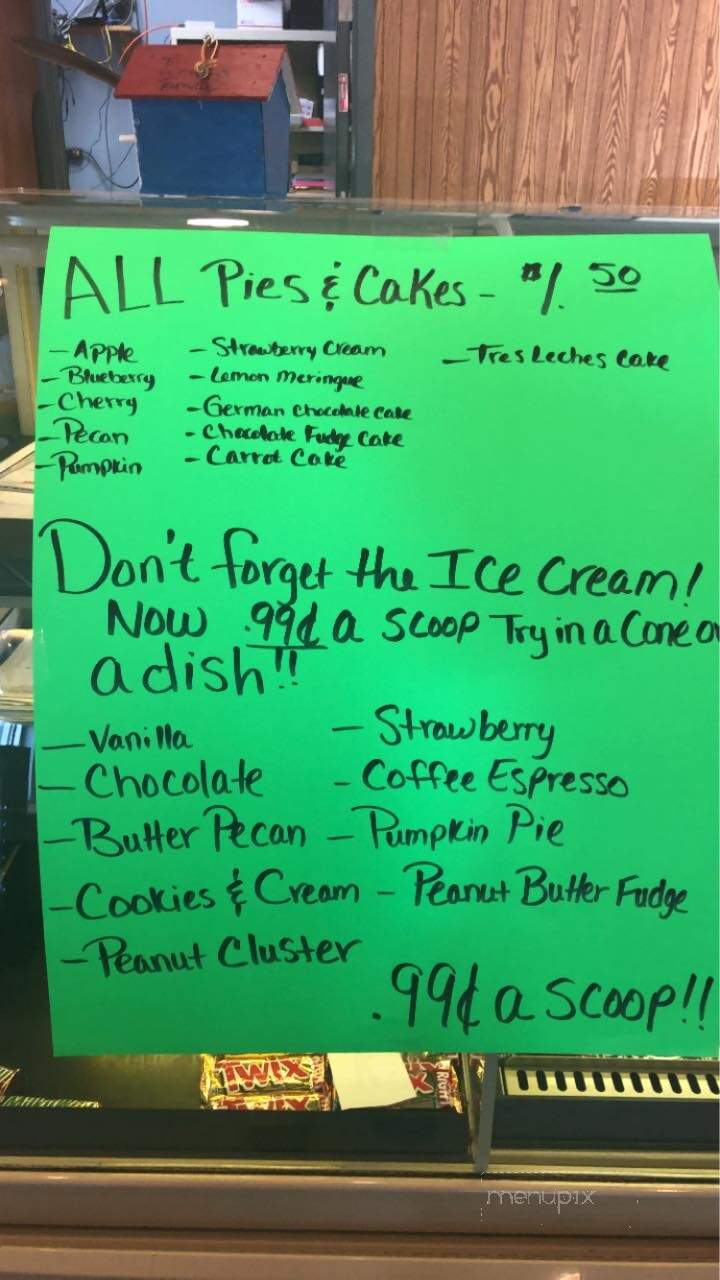 ALL Pies & Cakes - $1.50
- Apple - Strawberry Cream - Tres Leches Cake
- Blueberry - Lemon Meringue
- Cherry - German Chocolate Cake
- Pecan - Chocolate Fudge Cake
- Pumpkin - Carrot Cake
Don't forget the Ice Cream!
Now .99¢ a scoop Try in a Cone or
a dish!!
- Vanilla - Strawberry
- Chocolate - Coffee Espresso
- Butter Pecan - Pumpkin Pie
- Cookies & Cream - Peanut Butter Fudge
- Peanut Cluster
.99¢ a scoop!!
TWIX
TWIX
menupix